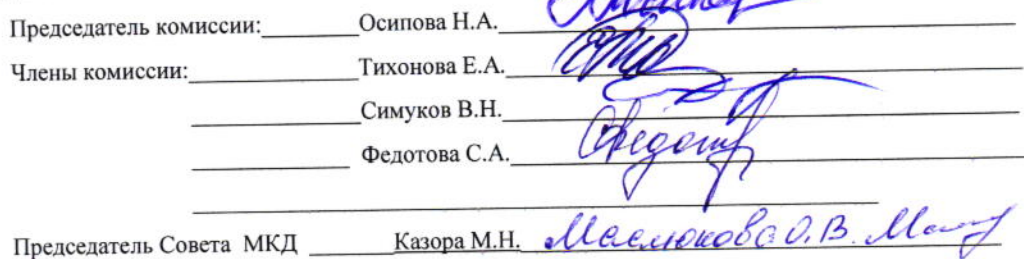 Председатель комиссии:________Осипова Н.А.
Члены комиссии:______________Тихонова Е.А.
______________Симуков В.Н.
______________ Федотова С.А.
Председатель Совета МКД _______Казора М.Н. Маслюкова О.В.